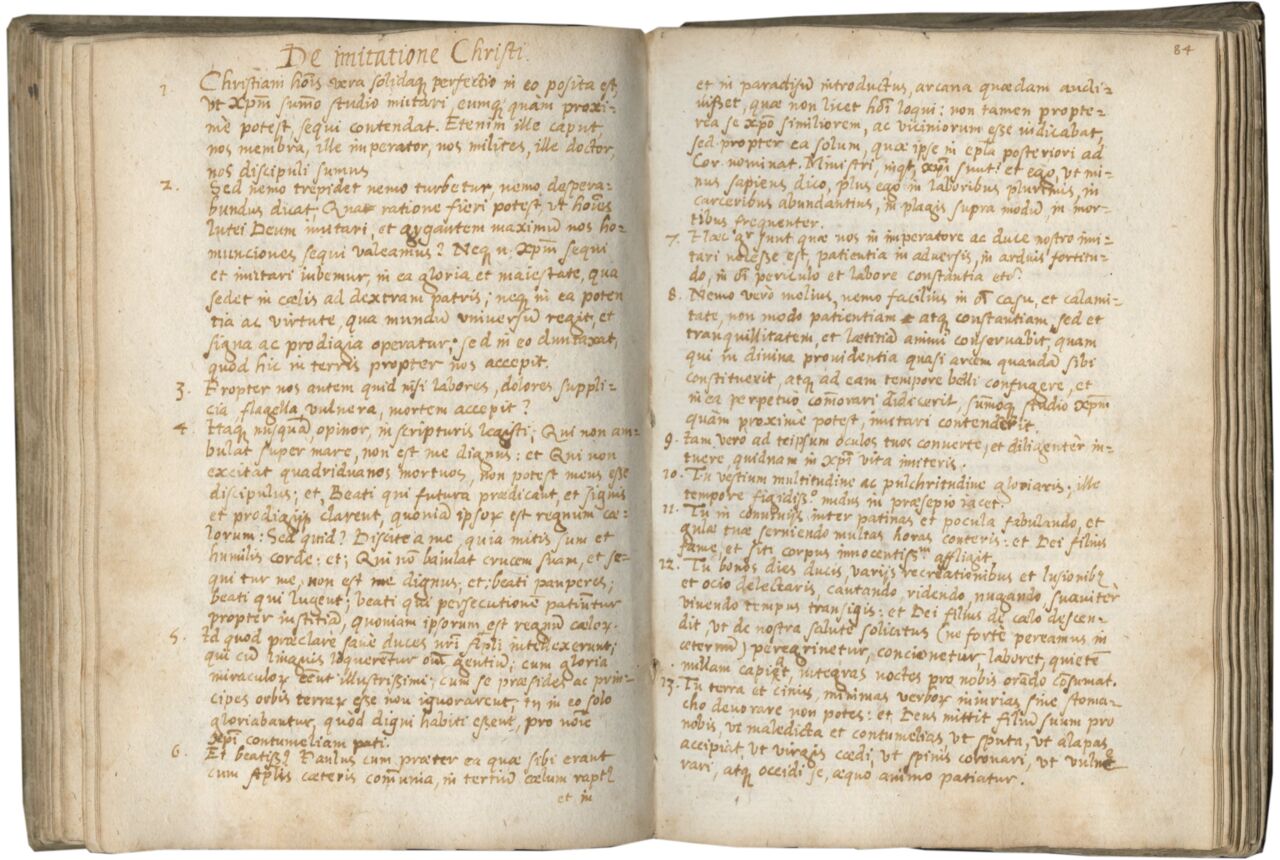 De imitatione Christi.
1 Christiani hoĩs vera solidaq; perfectio in eo posita est,
vt Xpm̃ sum̃o studio imitari, eumq; quàm proxi-
mè potest, sequi contendat. Etenim ille caput,
nos membra, ille imperator, nos milites, ille doctor,
nos discipuli sumus
2. Sed nemo trepidet nemo turbetur, nemo despera-
bundus dicat; Qua ratione fieri potest, vt hoĩes
lutei Deum imitari, et gygantem maximũ nos ho-
munciones sequi valeamus? Neq; n. Xpm̃ sequi
et imitari iubemur, in ea gloria et maiestate, qua
sedet in cælis ad dextram patris; neq; in ea poten
tia ac virtute, qua mundũ vniversũ regit, et
signa ac prodigia operatur; sed in eo duntaxat,
quod hic in terris propter nos accepit.
3. Propter nos autem quid nisi labores, dolores suppli-
cia, flagella vulnera, mortem accepit?
4. Itaq; nusquã, opinor, in scripturis legisti; Qui non am
bulat super mare, non est me dignus: et Qui non
excitat quadriduanos mortuos, non potest meus esse
discipulus; et, Beati qui futura prædicant, et signis
et prodigijs clarent, quoniã ipsoꝝ est regnum cæ-
lorum: Sed quid? Discite à me, quia mitis sum et
humilis corde: et; Qui nõ baiulat crucem suam, et se-
quitur me, non est me dignus; et: beati pauperes;
beati qui lugent; beati qui persecutionẽ patiuntur
propter iustitiã, quoniam ipsorum est regnũ cæloꝝ.
5. Id quod præclare sanè duces nr̃i Apl̃i intellexerunt;
qui cũ linguis loquerentur oĩum gentiũ; cum gloria
miraculoꝝ eẽnt illustrissimi; cum se præsides ac prin-
cipes orbis terraꝝ esse non ignorarent, tñ in eo solo
gloriabantur, quòd digni habiti essent, pro noĩe
Xpĩ contumeliam pati.
6. Et beatiss9 Paulus cum præter ea quæ sibi erant
cum Apl̃is cæteris com̃unia, in tertiũ cælum rapt9
et in
84
et in paradisũ introductus, arcana quædam audi-
uisset, quæ non licet hoĩ loqui: non tamen propte-
rea se xpõ similiorem, ac viciniorum esse iudicabat,
sed propter ea solum, quæ ipse in epl̃a posteriori ad
Cor. nominat. Ministri, inqt, xpĩ sunt? et ego, vt mi-
nus sapiens dico, plus ego in laboribus plurimis, in
carceribus abundantius, in plagis supra modũ, in mor-
tibus frequenter.
7. Hæc gr sunt quæ nos in imperatore ac duce nostro imi-
tari necesse est, patientia in adversis, in arduis fortitu-
do, in oĩ periculo et labore constantia etc.
8. Nemo verò melius, nemo facilius in oĩ casu, et calami-
tate, non modo patientiam atq; constantiam, sed et
tranquillitatem, et lætitiã animi conservabit, quam
qui in divina providentia quasi arcem quandã sibi
constituerit, atq; ad eam tempore belli confugere, et
in ea perpetuò com̃orari didicerit, sum̃oq; studio xpm̃
quàm proximè potest, imitari contenderit.
9. Iam vero ad teipsum oculos tuos converte, et diligenter in-
tuere quidnam in xpĩ vita imiteris.
10. Tu vestium multitudine ac pulchritudine gloriaris; ille
tempore frigidisso nudus in præsepio iacet.
11. Tu in conuiuijs inter patinas et pocula fabulando, et
gulæ tuæ serviendo multas horas conteris: et Dei filius
fame, et siti corpus innocentissm affligit.
12. Tu bonos dies ducis, varijs recreationibus et lusionib9
et ocio delectaris, cantando, ridendo, nugando, suaviter
vivendo tempus transigis: et Dei filius de cælo descen-
dit, vt de nostra salute solicitus (ne fortè pereamus in
æternũ) peregrinetur, concionetur, laboret, quietẽ
nullam capiat, integras noctes pro nobis orãdo cõsumat.
13. Tu terra et cinis, minimas verboꝝ iniurias sine stoma-
cho devorare non potes: et Deus mittit filiũ suum pro
nobis, vt maledicta et contumelias, vt sputa, vt alapas
accipiat, vt virgis cædi, vt spinis coronari, vt vulne
rari, atq; occidi se, æquo animo patiatur.